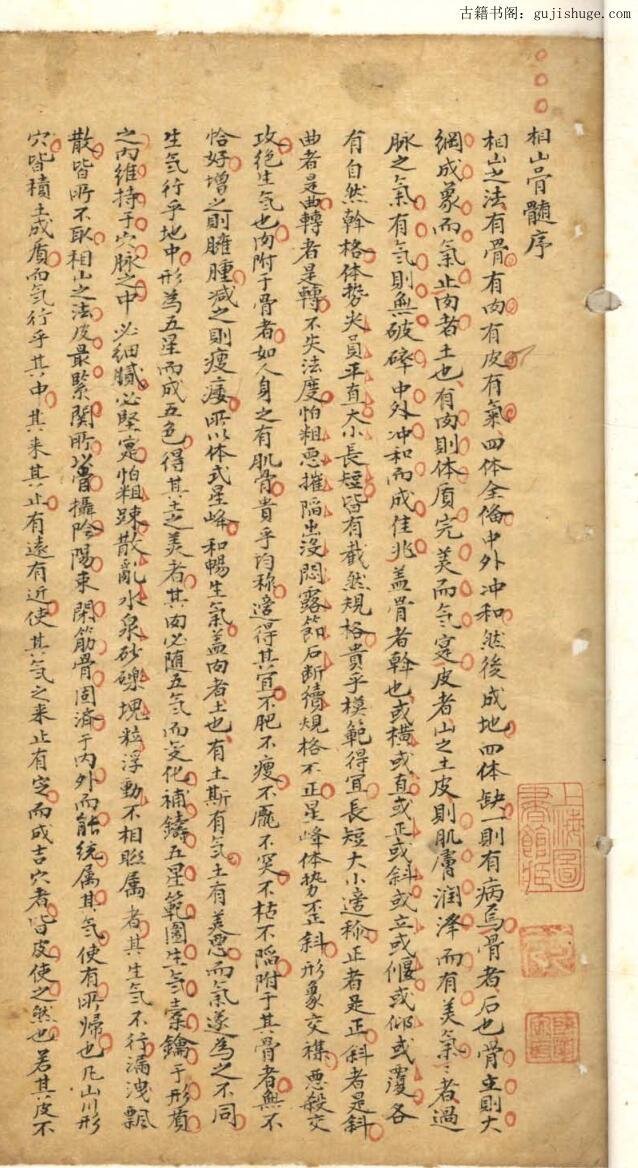 古籍书阁：gujishuge.com
相山骨髓序
相山之法有骨有肉有皮有氣四体全俻中外冲和然後成地四体缺一則有病焉骨者石也骨立則大
綱成象而氣止肉者土也有肉則体质完美而气寔皮者山之土皮則肌膚润泽而有美氣〻者過
脉之氣有气則無破碎中外冲和而成佳兆盖骨者幹也或橫或直或正或斜或立或偃或仰或覆各
有自然幹格体勢尖員平直大小長短皆有截然規格貴乎模範得宜長短大小逄称正者是正斜者是斜
曲者是曲轉者是轉不失法度怕粗悪摧陷出没悶露節石断续規格不正星峰体势歪斜形象交襍悪殺交
攻绝生气也肉附于骨者如人身之有肌骨貴乎均称逄得其宜不肥不瘦不麁不突不枯不陥附于其骨者無不
恰好增之則臃腫减之則瘦瘻所以体式星峰和暢生氣盖肉者土也有土斯有气土有美悪而氣遂為之不同
生气行乎地中形為五星而成五色得其土之美者其肉必随五气而变化補鑄五星範圍生气橐鑰于形質
之内維持于穴脉之中必细膩必堅寔怕粗踈散亂水泉砂礫塊粒浮動不相聮属者其生气不行漏洩飄
散皆所不取相山之法皮最緊関所以摄陰陽束閉筋骨周濟于内外而能统属其气使有所帰也凡山川形
穴皆積土成质而气行乎其中其来其止有遠有近使其气之来止有定而成吉穴者皆皮使之然也若其皮不
上海圖
書館藏